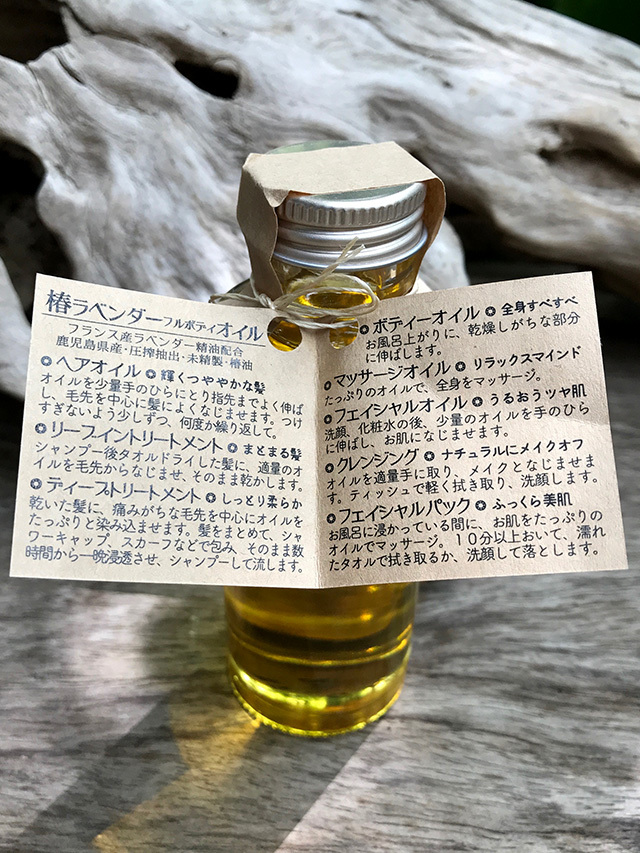 椿ラベンダーフルボディオイル
フランス産ラベンダー精油配合
鹿児島県産・圧搾抽出・未精製・椿油
❂ヘアオイル❂輝くつややかな髪
オイルを少量手のひらにとり指先までよく伸ば
し、毛先を中心に髪によくなじませます。つけ
すぎないよう少しずつ、何度か繰り返して。
❂リーブイントリートメント❂まとまる髪
シャンプー後タオルドライした髪に、適量のオ
イルを毛先からなじませ、そのまま乾かします。
❂ディープトリートメント❂しっとり柔らか
乾いた髪に、痛みがちな毛先を中心にオイルを
たっぷりと染み込ませます。髪をまとめて、シャ
ワーキャップ、スカーフなどで包み、そのまま数
時間から一晩浸透させ、シャンプーして流します。
❂ボディーオイル❂全身すべすべ
お風呂上がりに、乾燥しがちな部分
に伸ばします。
❂マッサージオイル❂リラックスマインド
たっぷりのオイルで、全身をマッサージ。
❂フェイシャルオイル❂うるおうツヤ肌
洗顔、化粧水の後、少量のオイルを手のひら
に伸ばし、お肌になじませます。
❂クレンジング❂ナチュラルにメイクオフ
オイルを適量手に取り、メイクとなじませま
す。ティッシュで軽く拭き取り、洗顔します。
❂フェイシャルパック❂ふっくら美肌
お風呂に浸かっている間に、お肌をたっぷりの
オイルでマッサージ。10分以上おいて、濡れ
たタオルで拭き取るか、洗顔して落とします。